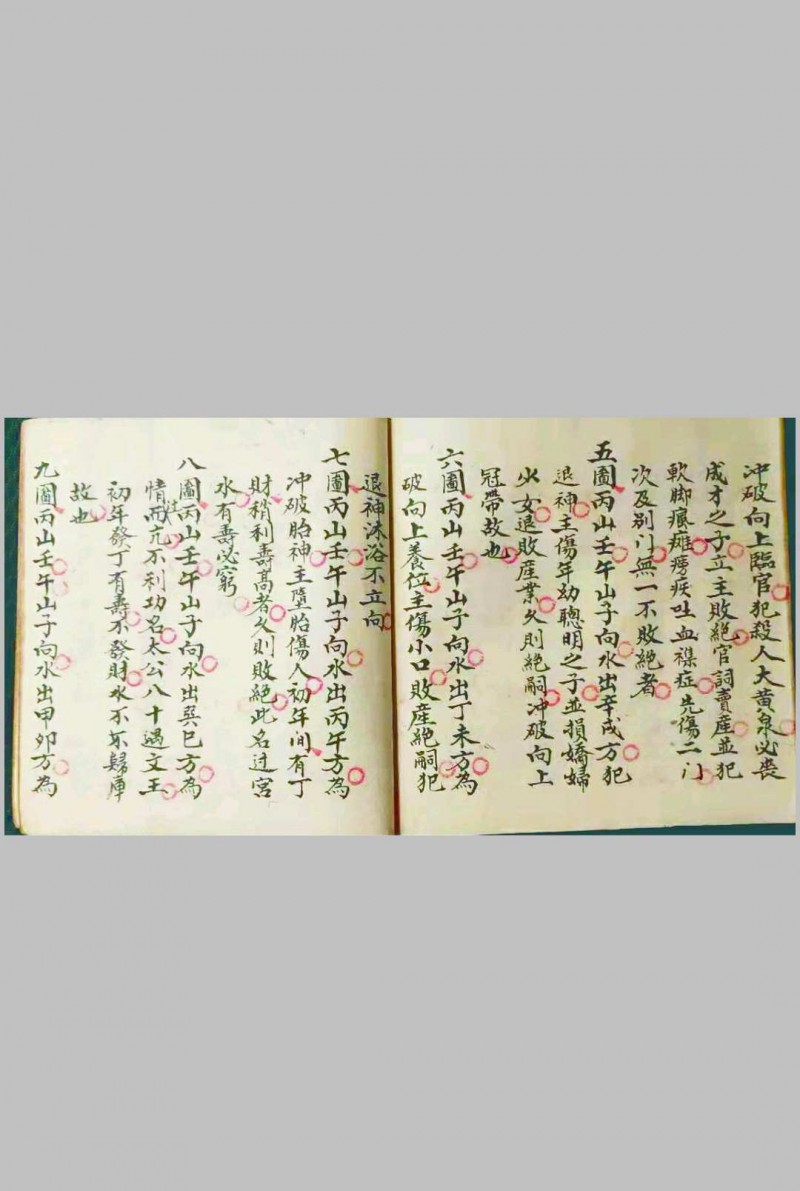 冲破向上臨官犯殺人大黄泉必喪
成才之子立主敗絶官詞賣産並犯
軟脚瘋癱癆疾吐血襍症先傷二门
次及别门無一不敗絶者
五圖丙山壬午山子向水出辛戌方犯
退神主傷年幼聰明之子並損嬌婦
少女退敗産業久則絶嗣冲破向上
冠帶故也
六圖丙山壬午山子向水出丁未方為
破向上養位主傷小口敗産絶嗣犯
退神沐浴不立向
七圖丙山壬午山子向水出丙午方為
冲破胎神主墮胎傷人初年间有丁
財稍利壽高者久則敗絶此名过宫
水有壽必窮
八圖丙山壬午山子向水出巽巳方為
情而亢不利功名太公八十遇文王
初年發丁有壽不發財水不歸庫
故也
九圖丙山壬午山子向水出甲卯方為